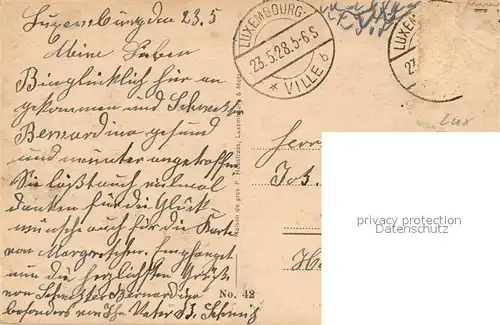 Luxemburg den 23.5
Meine Lieben
Bin glücklich hier an
gekommen und Schwester
Bernardina gesund
und munter angetroffen
Sie läßt auch vielmal
danken für die Glück
wünsche auch für die Karte
von Margretchen. Empfanget
nun die herzlichsten Grüße
von Schwester Bernardina
besonders von Ihr Vater B. Schmitz
LUXEMBOURG-
23.5.28.5-6S
* VILLE b
LUXEM
23
Maison de gros P. Houstraas, Luxembourg & Metz
No. 42
Herr
Jos.
lux
privacy protection
Datenschutz